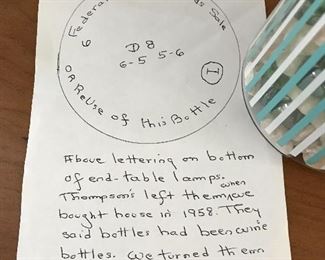 Sale
6
D 8
6-5 5-6
I
OR ReUse of this Bottle
Above lettering on bottom
of end-table lamps.
Thompson's left them when we
bought house in 1958. They
said bottles had been wine
bottles. We turned them